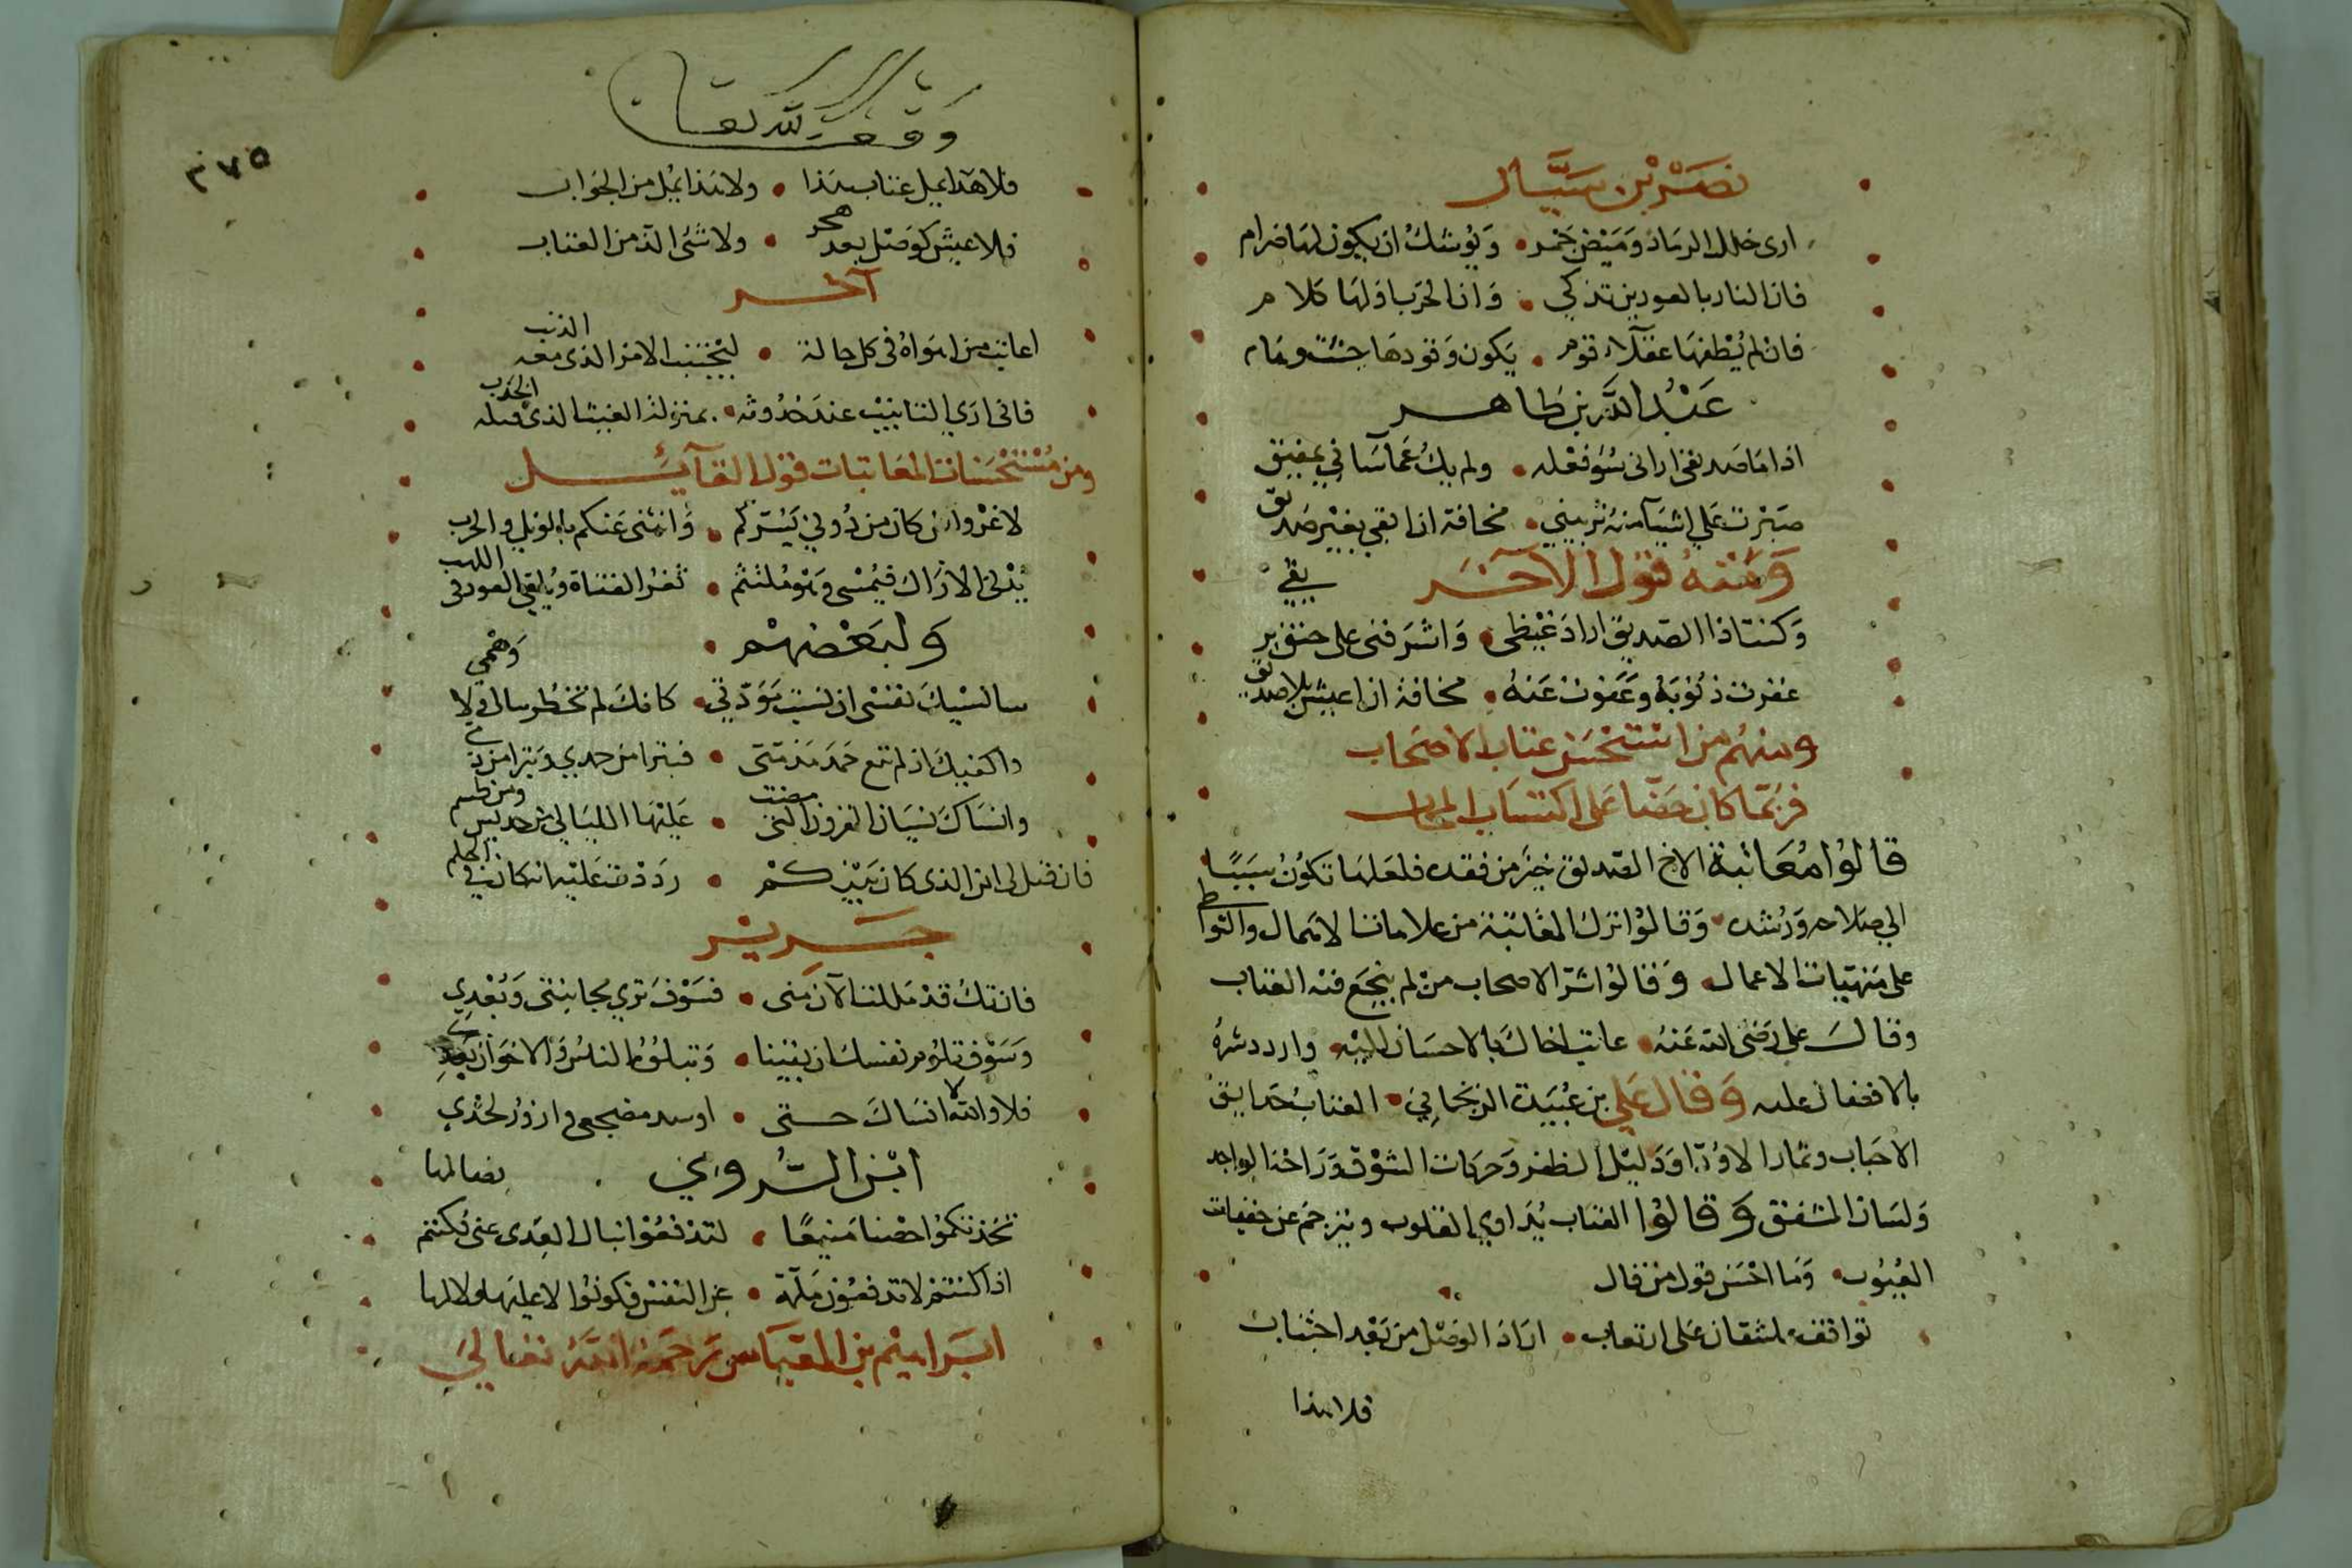 نصر بن سيّار
ارى خلل الرماد وميض جمر • ويوشك ان يكون لها ضرام
فان النار بالعودين تذكي • وان الحرب اولها كلام
فان لم يُطفها عقلاء قوم • يكون وقودها جثث وهام
عبد الله بن طاهر
اذا ما صديقي ارانى سوء فعله • ولم يك عما سآني بمفيق
صبرت علي اشيآ منه تريبني • مخافة ان ابقي بغير صديق
ومنه قول الآخر
وكنت اذا الصديق اراد غيظى • واشرفنى على حنق بريقي
غفرت ذنوبه وعفوت عنه • مخافة ان اعيش بلا صديق
ومنهم من استحسن عتاب الاصحاب
فربما كان حضّا على اكتساب المحاب
قالوا معاتبة الاخ الصديق خير من فقده فلعلها تكون سببًا
الي صلاحه ورشده • وقالوا ترك المعاتبة من علامات الاهمال والتواطي
على منهيات الاعمال • وقالوا شر الاصحاب من لم ينجع فيه العتاب
وقال على رضى الله عنه • عاتب اخاك بالاحسان اليه • واردد شره
بالافضال عليه وقال علي بن عبيدة الريحاني • العتاب حدايق
الاحباب وثمار الاودّا ودليل الظفر وحركات الشوق وراحة الواجد
ولسان المشفق وقالوا العتاب يداوي القلوب ويترجم عن خفيات
العيوب • وما احسن قول من قال
تواقف عاشقان على ارتقاب • ارادَ الوصل من بعد اجتناب
فلا هذا
وقف لله تعالى
٣٧٥
فلا هذا يمل عتاب هذا • ولا هذا يمل من الجواب
فلا عيش كوصل بعد هجر • ولا شئ الذ من العتاب
آخر
اعاتب من اهواه في كل حالة • ليجتنب الامر الذى معه الذنب
فانى ارى التانيب عند حدوثه • بمنزلة الغيث الذى قبله الجدب
ومن مستحسنات المعاتبات قول القآئل
لا غرو ان كان من دوني يسرّكم • وانثنى عنكم بالويل والحرب
يُدنى الاراك فيمسى وهو ملتثم • ثغر الفتاة ويلقي العود في اللهب
ولبعضهم
سانسيك نفسى ان نسيت مودتي • كانك لم تخطر ببالى ولا وهمي
واكفيك ان لم ترع حمد مذمتى • فتبرا من حمدي وتبرا من ذمي
وانساك نسيان القرون التى مضت • عليها الليالي من جديس ومن طسم
فان قيل لى اين الذى كان بينكم • رددت عليه انه كان في الحلم
جرير
فان تك قد مللت الآن منى • فسوف تري مجانبتى وبعدي
وسوف تلوم نفسك ان بقينا • وتبلو الناس والاخوان بعدي
فلا والله لا انساك حتى • اوسد مضجعى وازور لحدي
ابن الرومي
تخذتكموا حصنا منيعًا • لتدفعوا نبال العدى عنى فكنتم نصالها
اذا كنتم لا تدفعون ملمة • عن النفس فكونوا لا عليها ولا لها
ابراهيم بن العباس رحمه الله تعالي